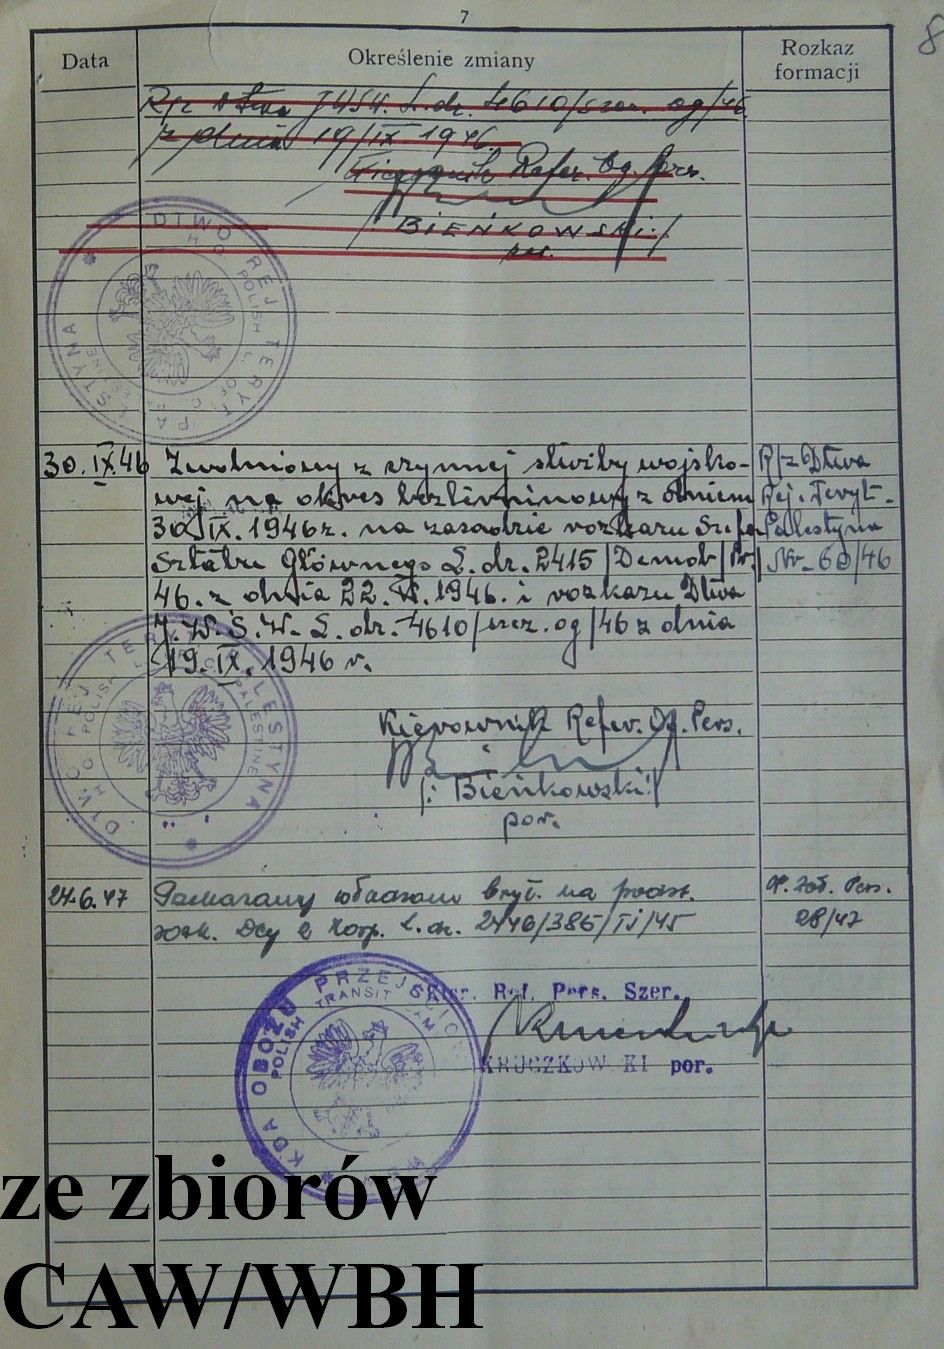 7
8
Data
Określenie zmiany
Rozkaz
formacji
J454. L.dz. 4610/szer. og/46
z dnia 19/IX.1946.
Kierownik Refer. Og. Pers.
/: BIEŃKOWSKI :/
por.
DTWO REJ TERYT PALESTYNA
H.Q. POLISH PALESTINE
30.IX.46 Zwolniony z czynnej służby wojsko- R/z Dtwa
wej na okres bezterminowy z dniem Rej. Teryt.
30.IX.1946r. na zasadzie rozkazu Szefa Palestyna
Sztabu Głównego L.dz. 2415/Demob/Pr./ Nr. 60/46
46. z dnia 22.VI.1946. i rozkazu Dtwa
J.W.Ś.W. L.dz. 4610/szcz.og/46 z dnia
19.IX.1946 r.
DTWO REJ TERYT PALESTYNA
H.Q. POLISH PALESTINE
Kierownik Refer. Og. Pers.
/: Bieńkowski :/
por.
24.6.47 Przekazany władzom bryt. na podst.
rozk. Dcy 2 Korp. L.dz. 2440/385/II/45
28/47
KDA OBOZU PRZEJŚCIO
POLISH TRANSIT CAM
Kier. Ref. Pers. Szer.
KRUCZKOW KI por.
ze zbiorów
CAW/WBH